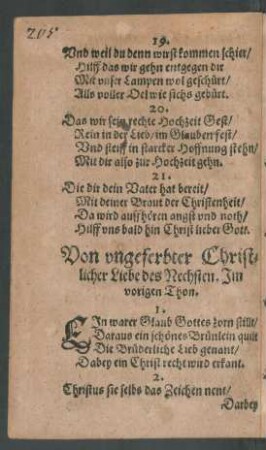 205
19.
Vnd weil du denn wirst kommen schier/
Hilff das wir gehn entgegen dir
Mit vnser Lampen wol geschürt/
Alls voller Oel wie sichs gebürt.
20.
Das wir sein rechte Hochzeit Gest/
Rein in der Lieb/ im Glauben fest/
Vnd steiff in starcker Hoffnung stehn/
Mit dir also zur Hochzeit gehn.
21.
Die dir dein Vater hat bereit/
Mit deiner Braut der Christenheit/
Da wird auffhören angst vnd noth/
Hilff vns bald hin Christ lieber Gott.
Von vngeferbter Christ-
licher Liebe des Nechsten. Im
vorigen Thon.
1.
EIn warer Glaub Gottes zorn stillt/
Daraus ein schönes Brünlein quilt
Die Brüderliche Lieb genant/
Dabey ein Christ recht wird erkant.
2.
Christus sie selbs das Zeichen nent/
Darbey